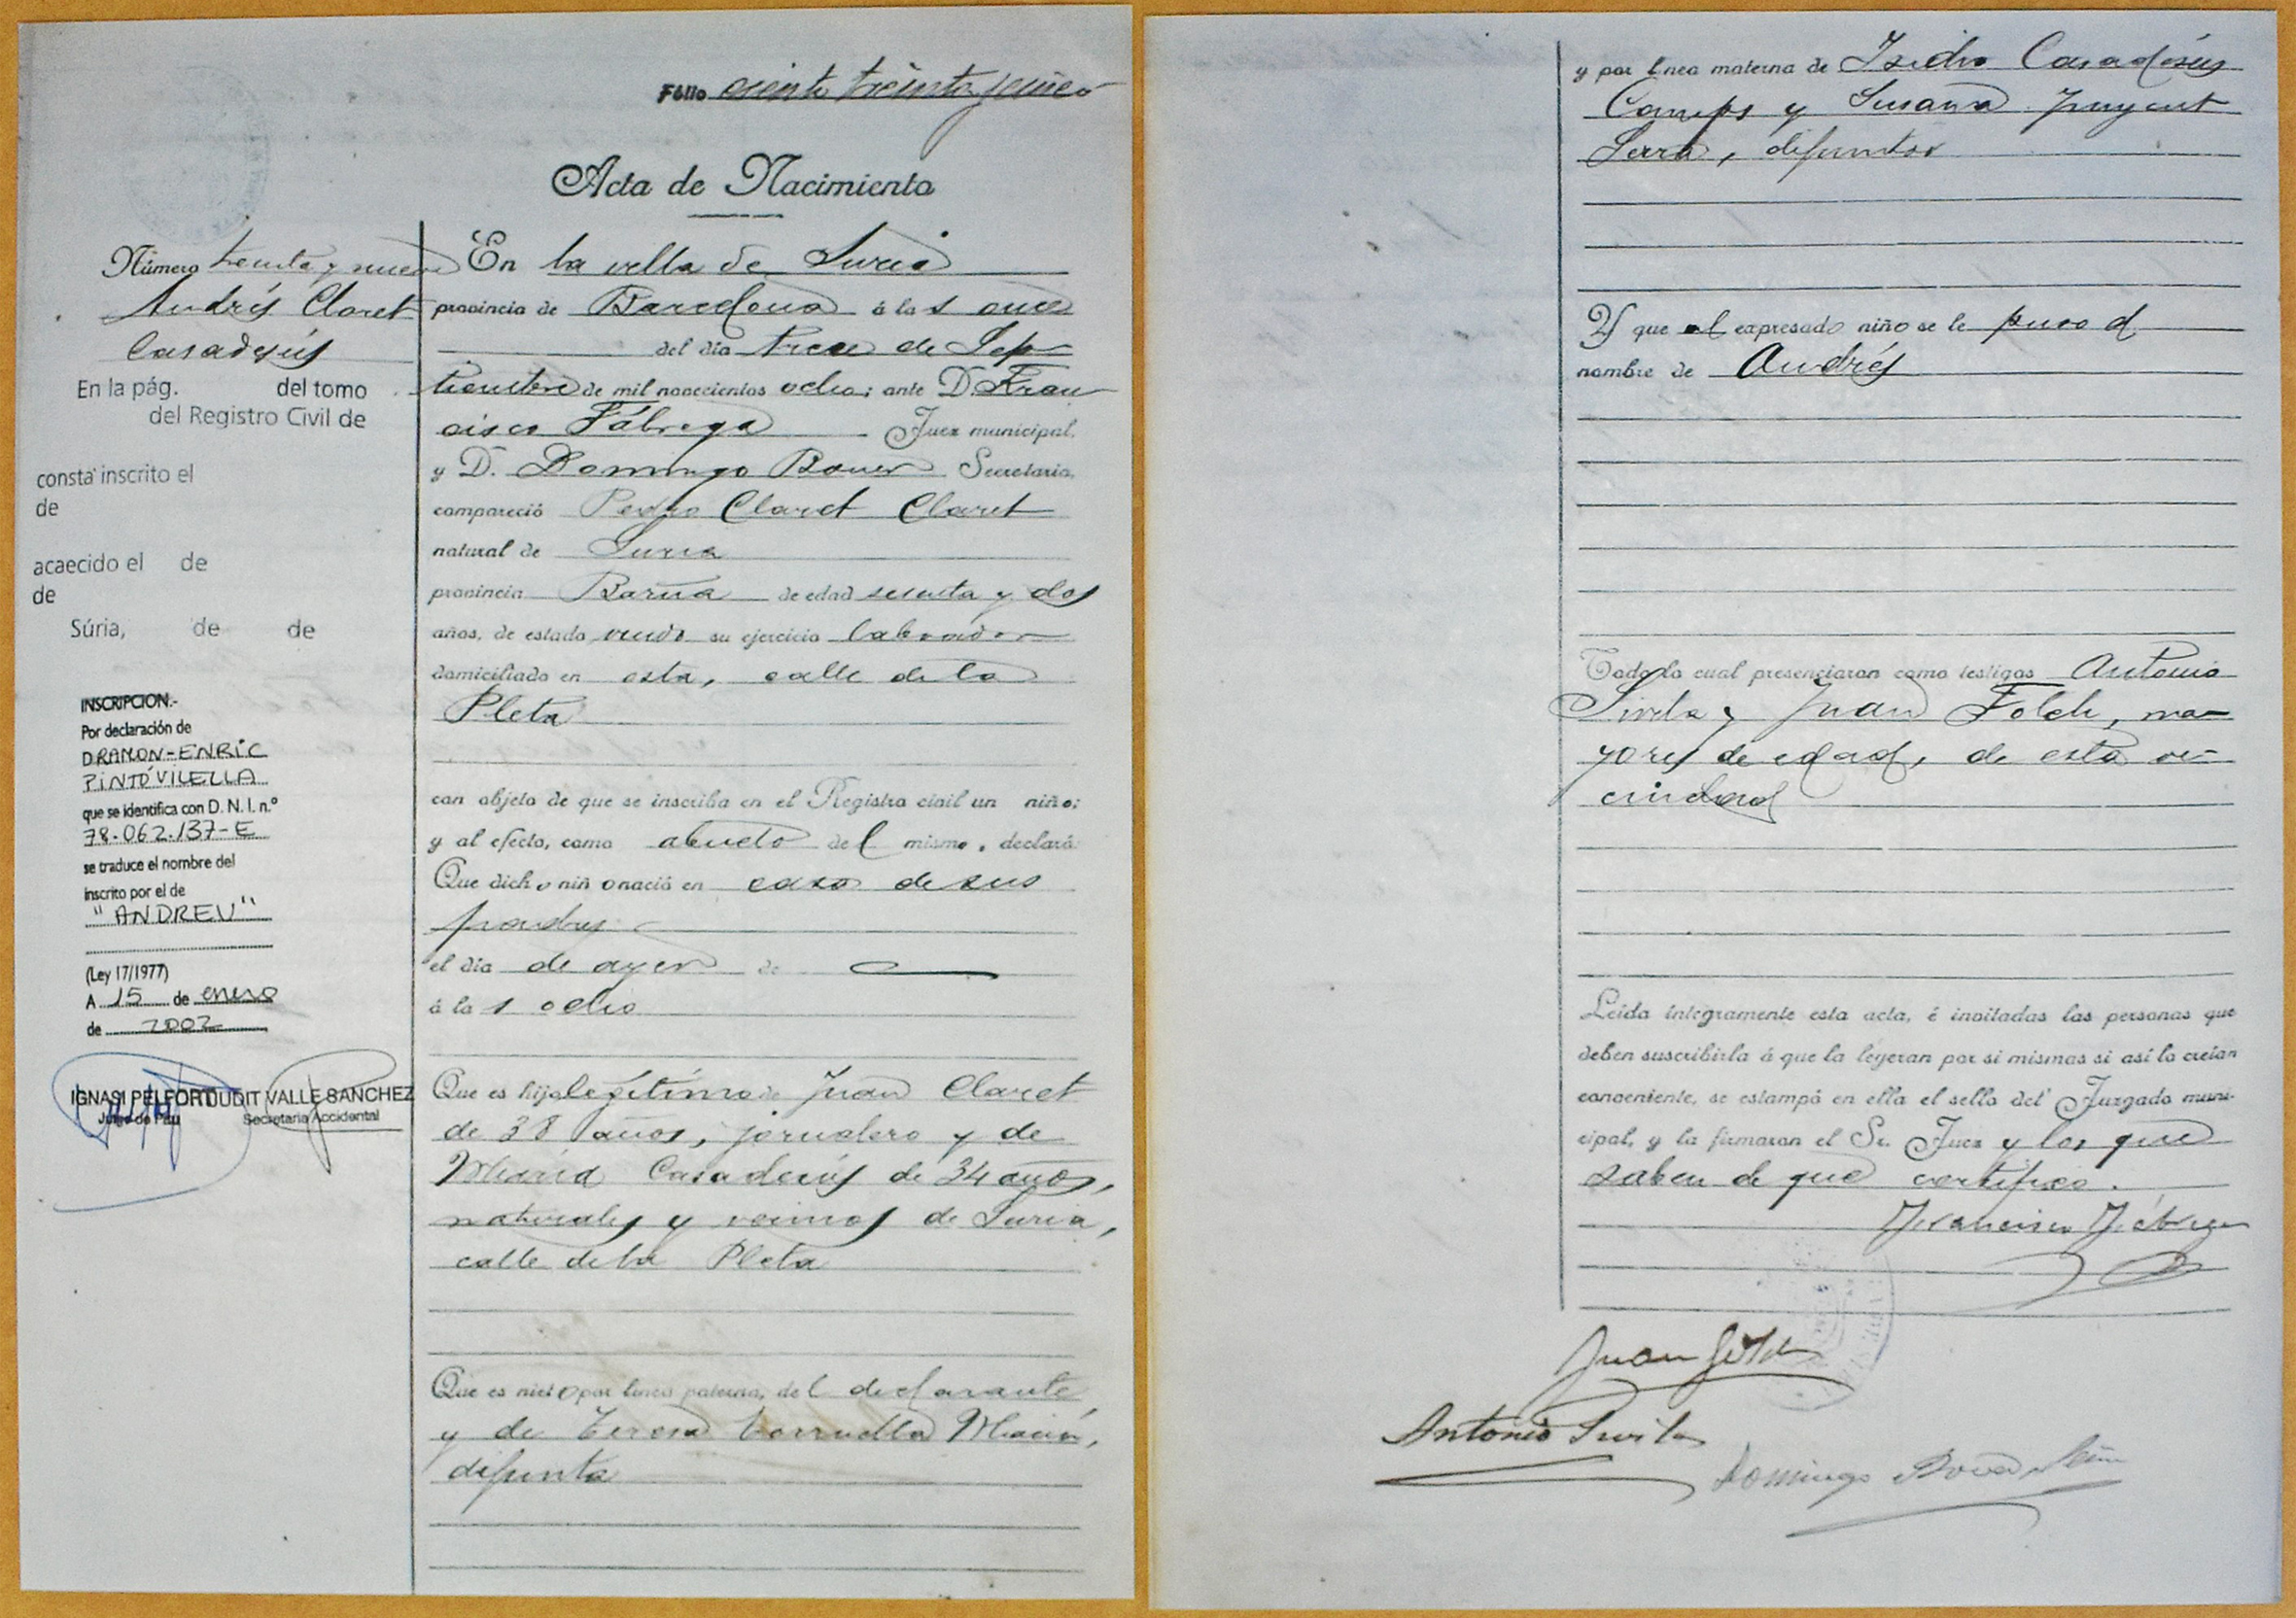 Folio ciento treinta y cinco
Acta de Nacimiento
Número treinta y nueve
Andrés Claret
Casadesús
En la pág. del tomo
del Registro Civil de
consta inscrito el
de
acaecido el de
de
Súria, de de
INSCRIPCION.-
Por declaración de
D RAMON-ENRIC
PINTÓ VILELLA
que se identifica con D. N. I. n.º
78.062.137-E
se traduce el nombre del
inscrito por el de
"ANDREU"
(Ley 17/1977)
A 15 de enero
de 2002
IGNASI PELFORT JUDIT VALLE SANCHEZ
Jutge de Pau Secretaria Accidental
En la villa de Suria
provincia de Barcelona á las once
del día trece de Sep
tiembre de mil novecientos ocho; ante D. Fran
cisco Fábrega Juez municipal,
y D. Domingo Secretario,
compareció Pedro Claret Claret
natural de Suria
provincia Barna de edad sesenta y dos
años, de estado viudo su ejercicio labrador
domiciliado en esta, calle de la
Pleta
con objeto de que se inscriba en el Registro civil un niño;
y al efecto, como abuelo del mismo, declaró:
Que dicho niño nació en casa de sus
padres
el día de ayer de
á las ocho
Que es hijo legítimo de Juan Claret
de 38 años, jornalero y de
María Casadesús de 34 años,
naturales y vecinos de Suria,
calle de la Pleta
Que es nieto por línea paterna, del declarante
y de Teresa Torruella
difunta
y por línea materna de Isidro Casadesús
Camps y Susana Puigcut
Serra, difuntos
Y que al expresado niño se le puso el
nombre de Andrés
Todo lo cual presenciaron como testigos Antonio
y Juan Folch, ma-
yores de edad, de esta ve-
cindad
Leída íntegramente esta acta, é invitadas las personas que
deben suscribirla á que la leyeran por sí mismas si así lo creían
conveniente, se estampó en ella el sello del Juzgado muni-
cipal, y la firmaron el Sr. Juez y los que
saben de que certifico.
Francisco Fábrega
Juan Folch
Antonio
Domingo